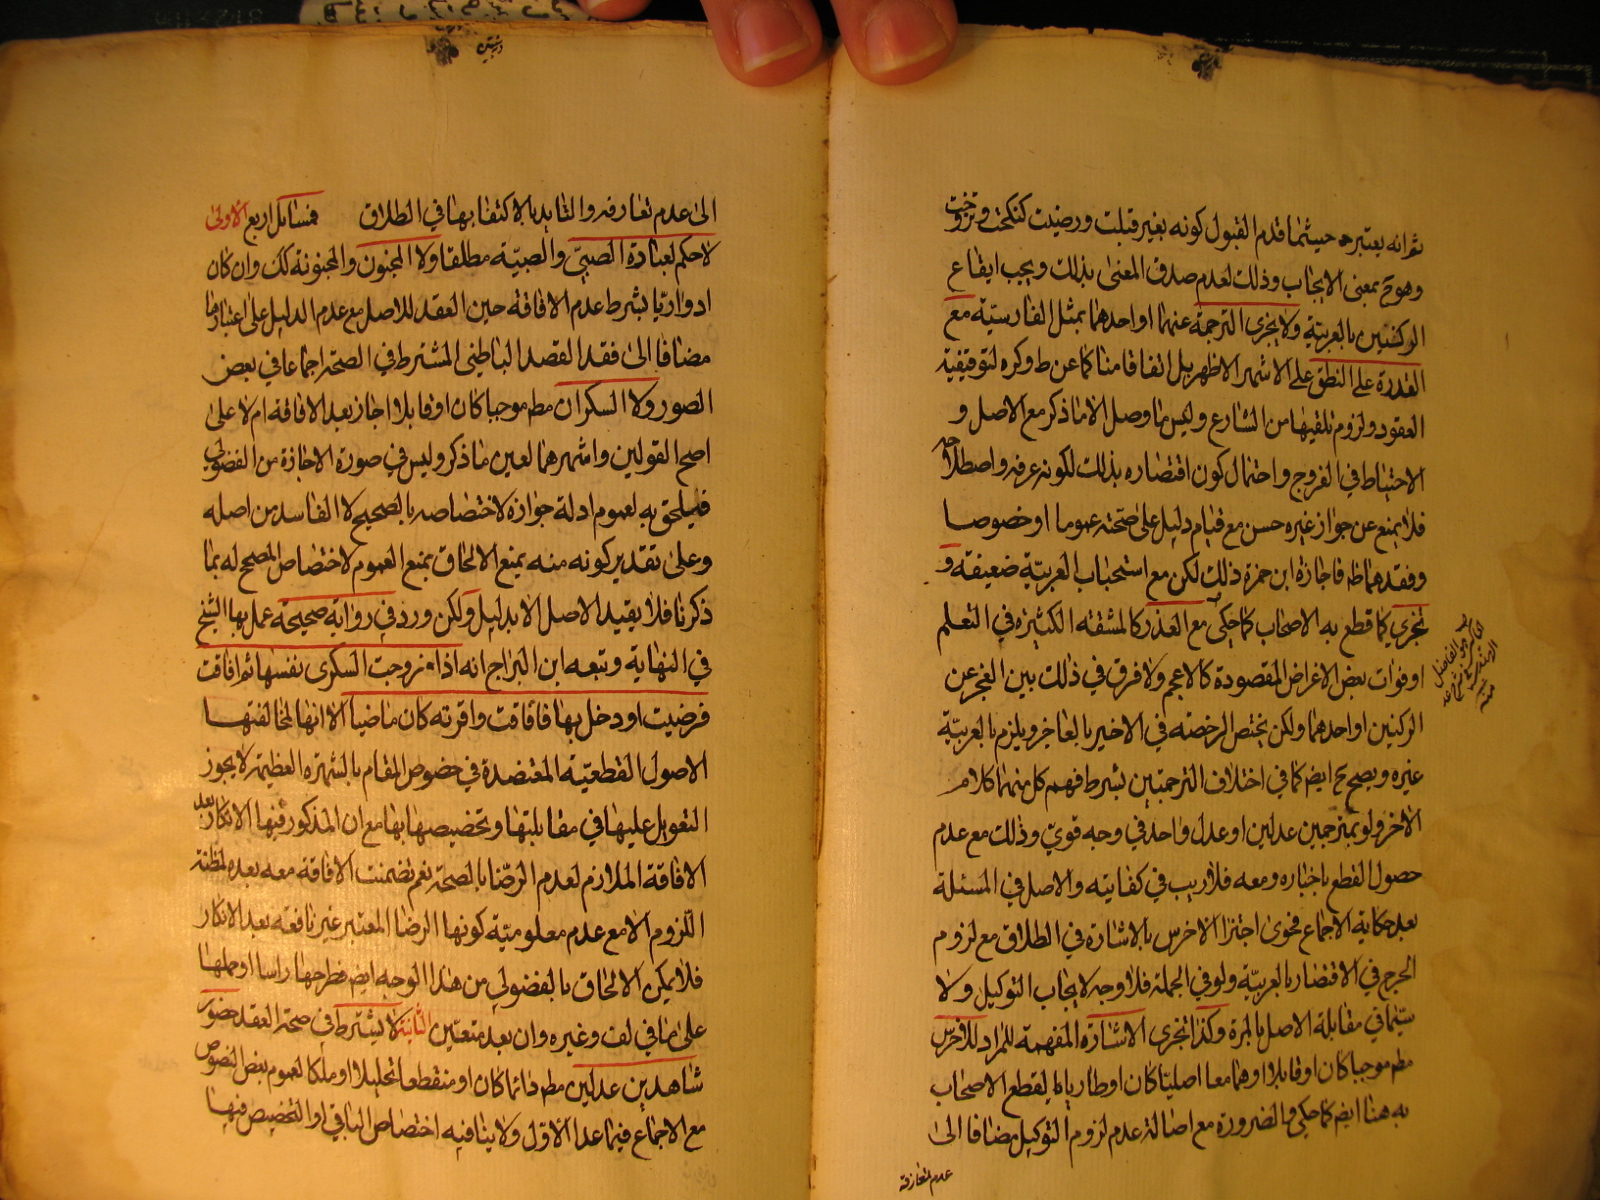 ثم انه يعتبر حيثما قدم القبول كونه بغير قبلت ورضيت كنكحت وتزوجت
وهو ح بمعنى الايجاب وذلك لعدم صدق المعنى بذلك ويجب ايقاع
الركنين بالعربية ولا يجزي الترجمة عنهما او احدهما بمثل الفارسية مع
القدرة على النطق على الاشهر الاظهر بل اتفاقا منا كما عن ط وكره لتوقيفية
العقود ولزوم تلقيها من الشارع وليس مما وصل الا ما ذكر مع الاصل و
الاحتياط في الفروج واحتمال كون اقتصاره بذلك لكونه عرفه واصطلاحه
فلا يمنع عن جواز غيره حسن مع قيام دليل على صحته عموما او خصوصا
وفقدهما ظ فاجازة ابن حمزة ذلك لكن مع استحباب العربية ضعيفة و
تجزي كما قطع به الاصحاب كما حكى مع العذر كالمشقة الكثيرة في التعلم
او فوات بعض الاغراض المقصودة كالاعجم ولا فرق في ذلك بين العجز عن
الركنين او احدهما ولكن يختص الرخصه في الاخير بالعاجز ويلزم بالعربية
غيره ويصح ح ايض كما في اختلاف الترجمتين بشرط فهم كل منهما كلام
الاخر ولو بمترجمين عدلين او عدل واحد في وجه قوي وذلك مع عدم
حصول القطع باخباره ومعه فلا ريب في كفايته والاصل في المسئلة
بعد حكاية الاجماع فحوى اجتزاء الاخرس بالاشارة في الطلاق مع لزوم
الحرج في الاقتصار بالعربية ولو في الجملة فلا وجه لايجاب التوكيل ولا
سيما في مقابلة الاصل بالمرة وكذا تجزي الاشارة المفهمة للمراد للاخرس
مطم موجبا كان او قابلا او هما معا اصليا كان او طاريا بالقطع الاصحاب
به هنا ايض كما حكي والضرورة مع اصالة عدم لزوم التوكيل مضافا الى
عدم تعارفه
الى عدم تعارفه والتاييد بالاكتفا بها في الطلاق مسائل اربع الاولى
لا حكم لعبارة الصبي والصبية مطلقا ولا المجنون والمجنونة كك وان كان
ادواريا بشرط عدم الافاقة حين العقد للاصل مع عدم الدليل على اعتبارها
مضافا الى فقد القصد الباطني المشترط في الصحة اجماعا في بعض
الصور ولا السكران مطم موجبا كان او قابلا اجاز بعد الافاقه ام لا على
اصح القولين واشهرهما لعين ما ذكر وليس في صورة الاجازة من الفضولي
فيلحق به لعموم ادلة جوازه لاختصاصه بالصحيح لا الفاسد من اصله
وعلى تقدير كونه منه يمنع الالحاق بمنع العموم لاختصاص المصحح له بما
ذكرنا فلا يقيد الاصل الا بدليل ولكن ورد في رواية صحيحة عمل بها الشيخ
في النهاية وتبعه ابن البراج انه اذا زوجت السكرى نفسها ثم افاقت
فرضيت او دخل بها فافاقت واقرته كان ماضيا الا انها لمخالفتها
الاصول القطعية المعتضدة في خصوص المقام بالشهرة العظيمة لا يجوز
التعويل عليها في مقابلتها وتخصيصها بها مع ان المذكور فيها الانكار بعد
الافاقة الملازم لعدم الرضا بالصحة نعم تضمنت الاقامة معه بعده لمظنة
اللزوم الا مع عدم معلومية كونها الرضا المعتبر غير نافعه بعد الانكار
فلا يمكن الالحاق بالفضولي من هذا الوجه ايض فطرحها راسا او حملها
على ما في لف وغيره وان بعد متعين الثانية لا يشترط في صحة العقد حضور
شاهدين عدلين مطم دائما كان او منقطعا تحليلا او ملكا لعموم بعض النصوص
مع الاجماع فيما عدا الاول ولا ينافيه اختصاص الباقي او التخصيص فيها